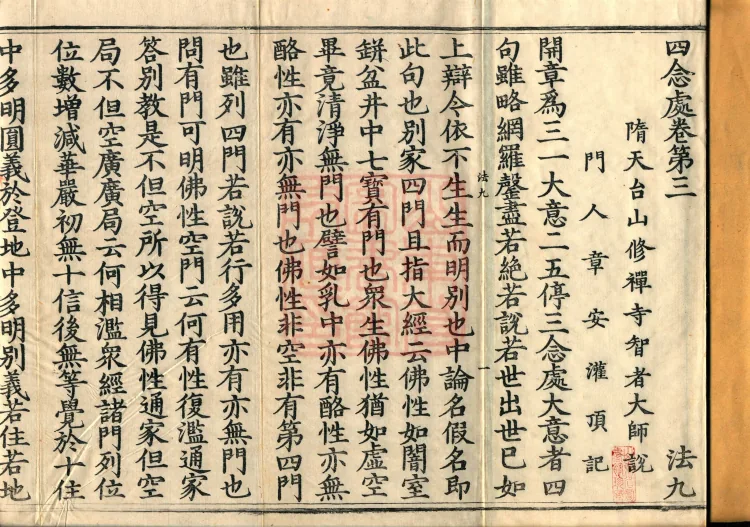 四念處卷第三 法九
隋天台山修禪寺智者大師說
門人章安灌頂記
開章為三一大意二五停三念處大意者四
句雖略網羅罄盡若絕若說若世出世已如
法九 一
上辯今依不生生而明別也中論名假名即
此句也別家四門且指大經云佛性如闇室
缾盆井中七寶有門也眾生佛性猶如虛空
畢竟清淨無門也譬如乳中亦有酪性亦無
酪性亦有亦無門也佛性非空非有第四門
也雖列四門若說若行多用亦有亦無門也
問有門可明佛性空門云何有性復濫通家
答別教是不但空所以得見佛性通家但空
局不但空廣廣局云何相濫眾經諸門列位
位數增減華嚴初無十信後無等覺於十住
中多明圓義於登地中多明別義若住若地